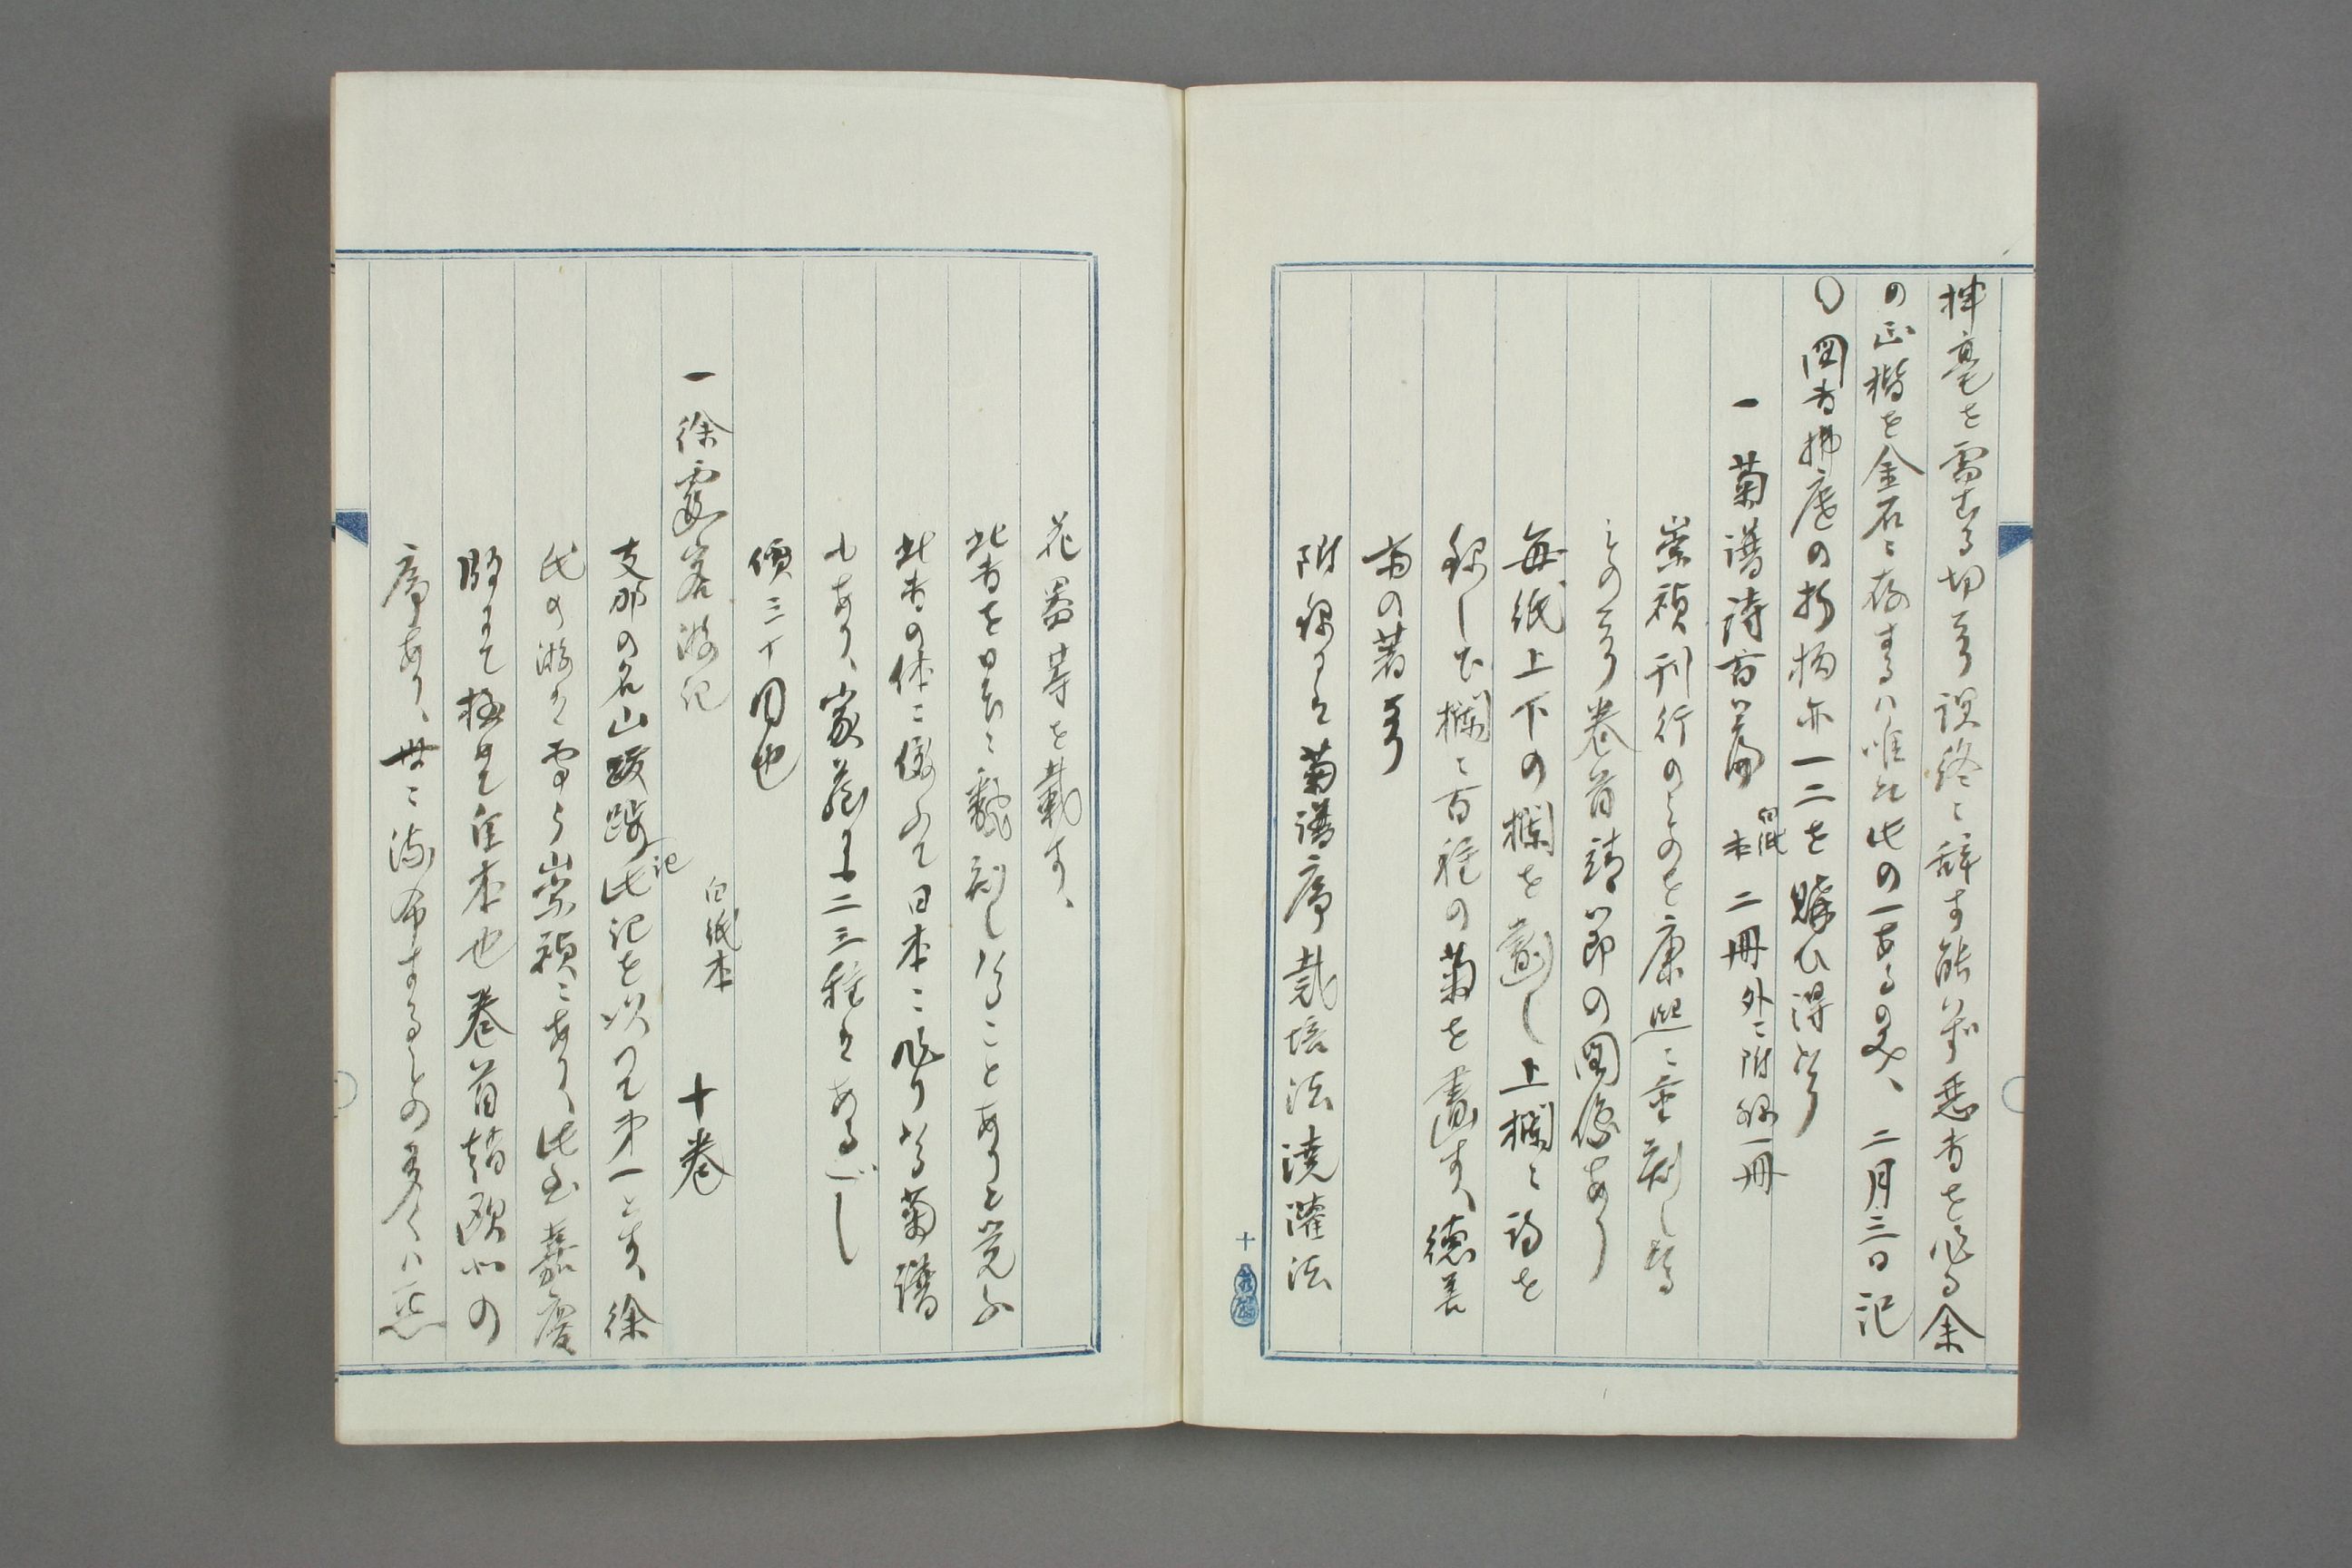 揮毫を需むる切なり遂に辞す能はず悪書を作る余
の正楷を金石に存するハ唯だ此の一あるのみ、二月三日記
〇図書掃庭の折柄亦一二を購ひ得たり
一菊譜詩百篇 白紙本 二冊外ニ附録一冊
崇禎刊行のものを康熙ニ重刻したる
ものなり巻首靖節の図像あり
毎紙上下の欄を劃し上欄ニ詩を
録し下欄ニ百種の菊を畫す、徳善
斎の著なり
附録には菊譜序栽培法澆灌法
花器等を載す、
此書を日本ニ翻刻したることありと覚ふ
此書の体ニ倣ふて日本ニ作りたる菊譜
もあり、家蔵にも二三種はあるべし
價三十円也
一徐霞客游記 白紙本 十巻
支那の名山跋渉記此記を以つて第一とす、徐
氏の游は雪う崇禎ニあり、此書嘉慶
版にて極めて佳本也巻首趙欧北の
序あり、世ニ流布するもの多くハ悪
十